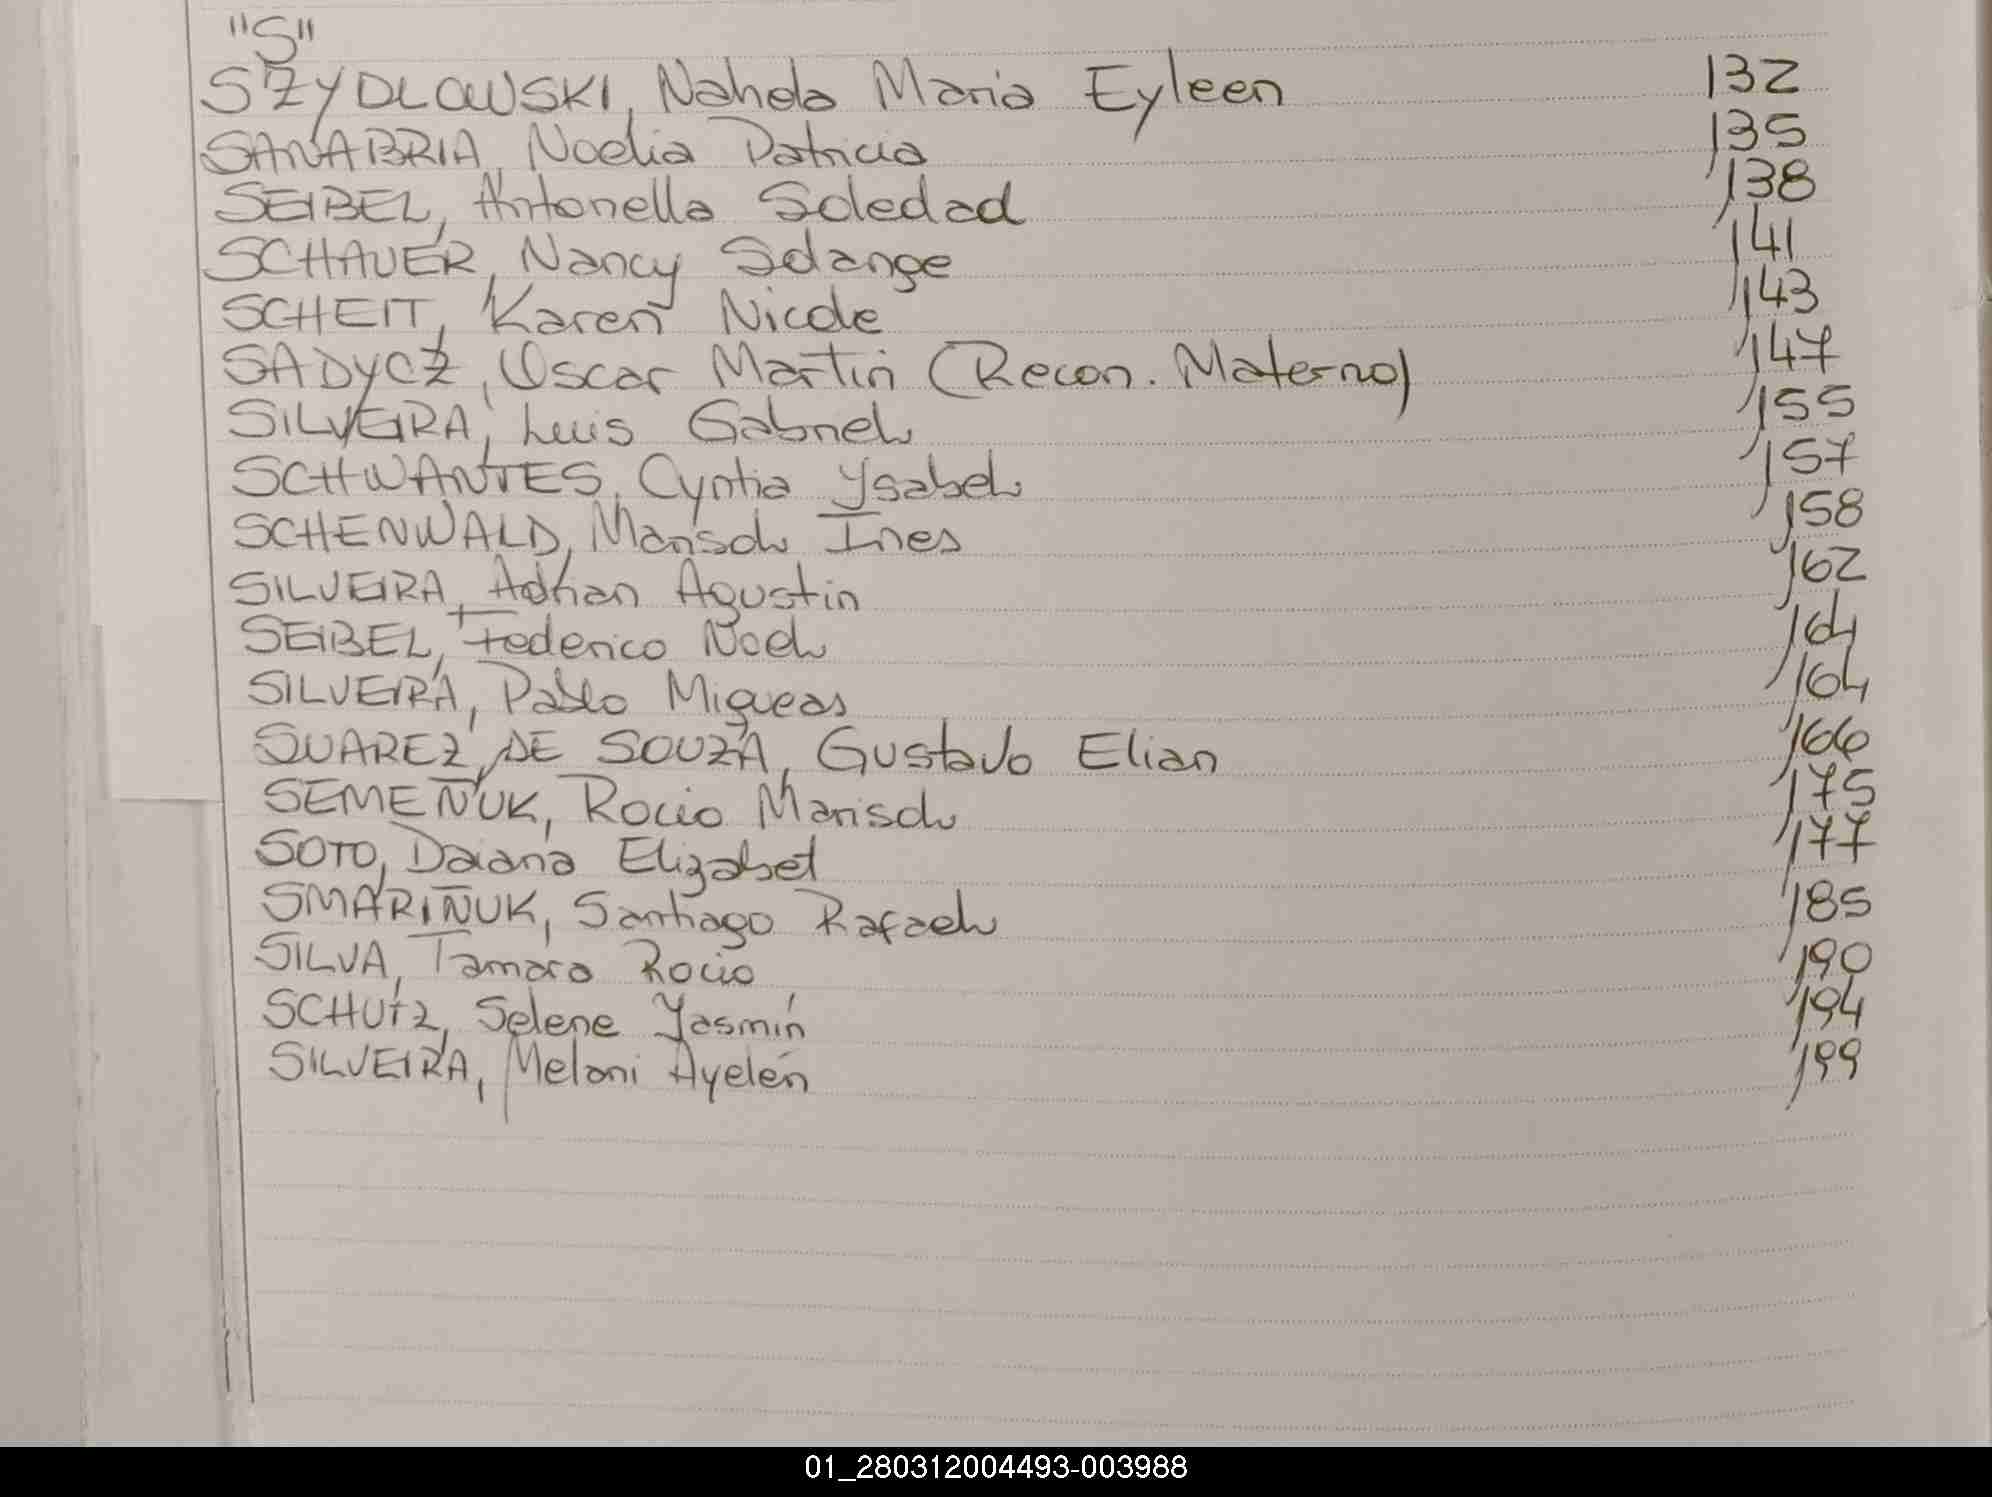 "S"
SZYDLOWSKI, Nahela Maria Eyleen 132
SANABRIA, Noelia Patricia 135
SEIBEL, Antonella Soledad 138
SCHAUER, Nancy Solange 141
SCHEIT, Karen Nicole 143
SADYCZ, Oscar Martin (Recon. Materno) 147
SILVEIRA, Luis Gabriel 155
SCHWANTES, Cyntia Ysabel 157
SCHENWALD, Marisol Ines 158
SILVEIRA, Adrian Agustin 162
SEIBEL, Federico Noel 164
SILVEIRA, Pablo Miqueas 164
SUAREZ DE SOUZA, Gustavo Elian 166
SEMEÑUK, Rocio Marisol 175
SOTO, Daiana Elizabet 177
SMARIÑUK, Santiago Rafael 185
SILVA, Tamara Rocio 190
SCHUTZ, Selene Yasmín 194
SILVEIRA, Melani Ayelén 199
01_280312004493-003988